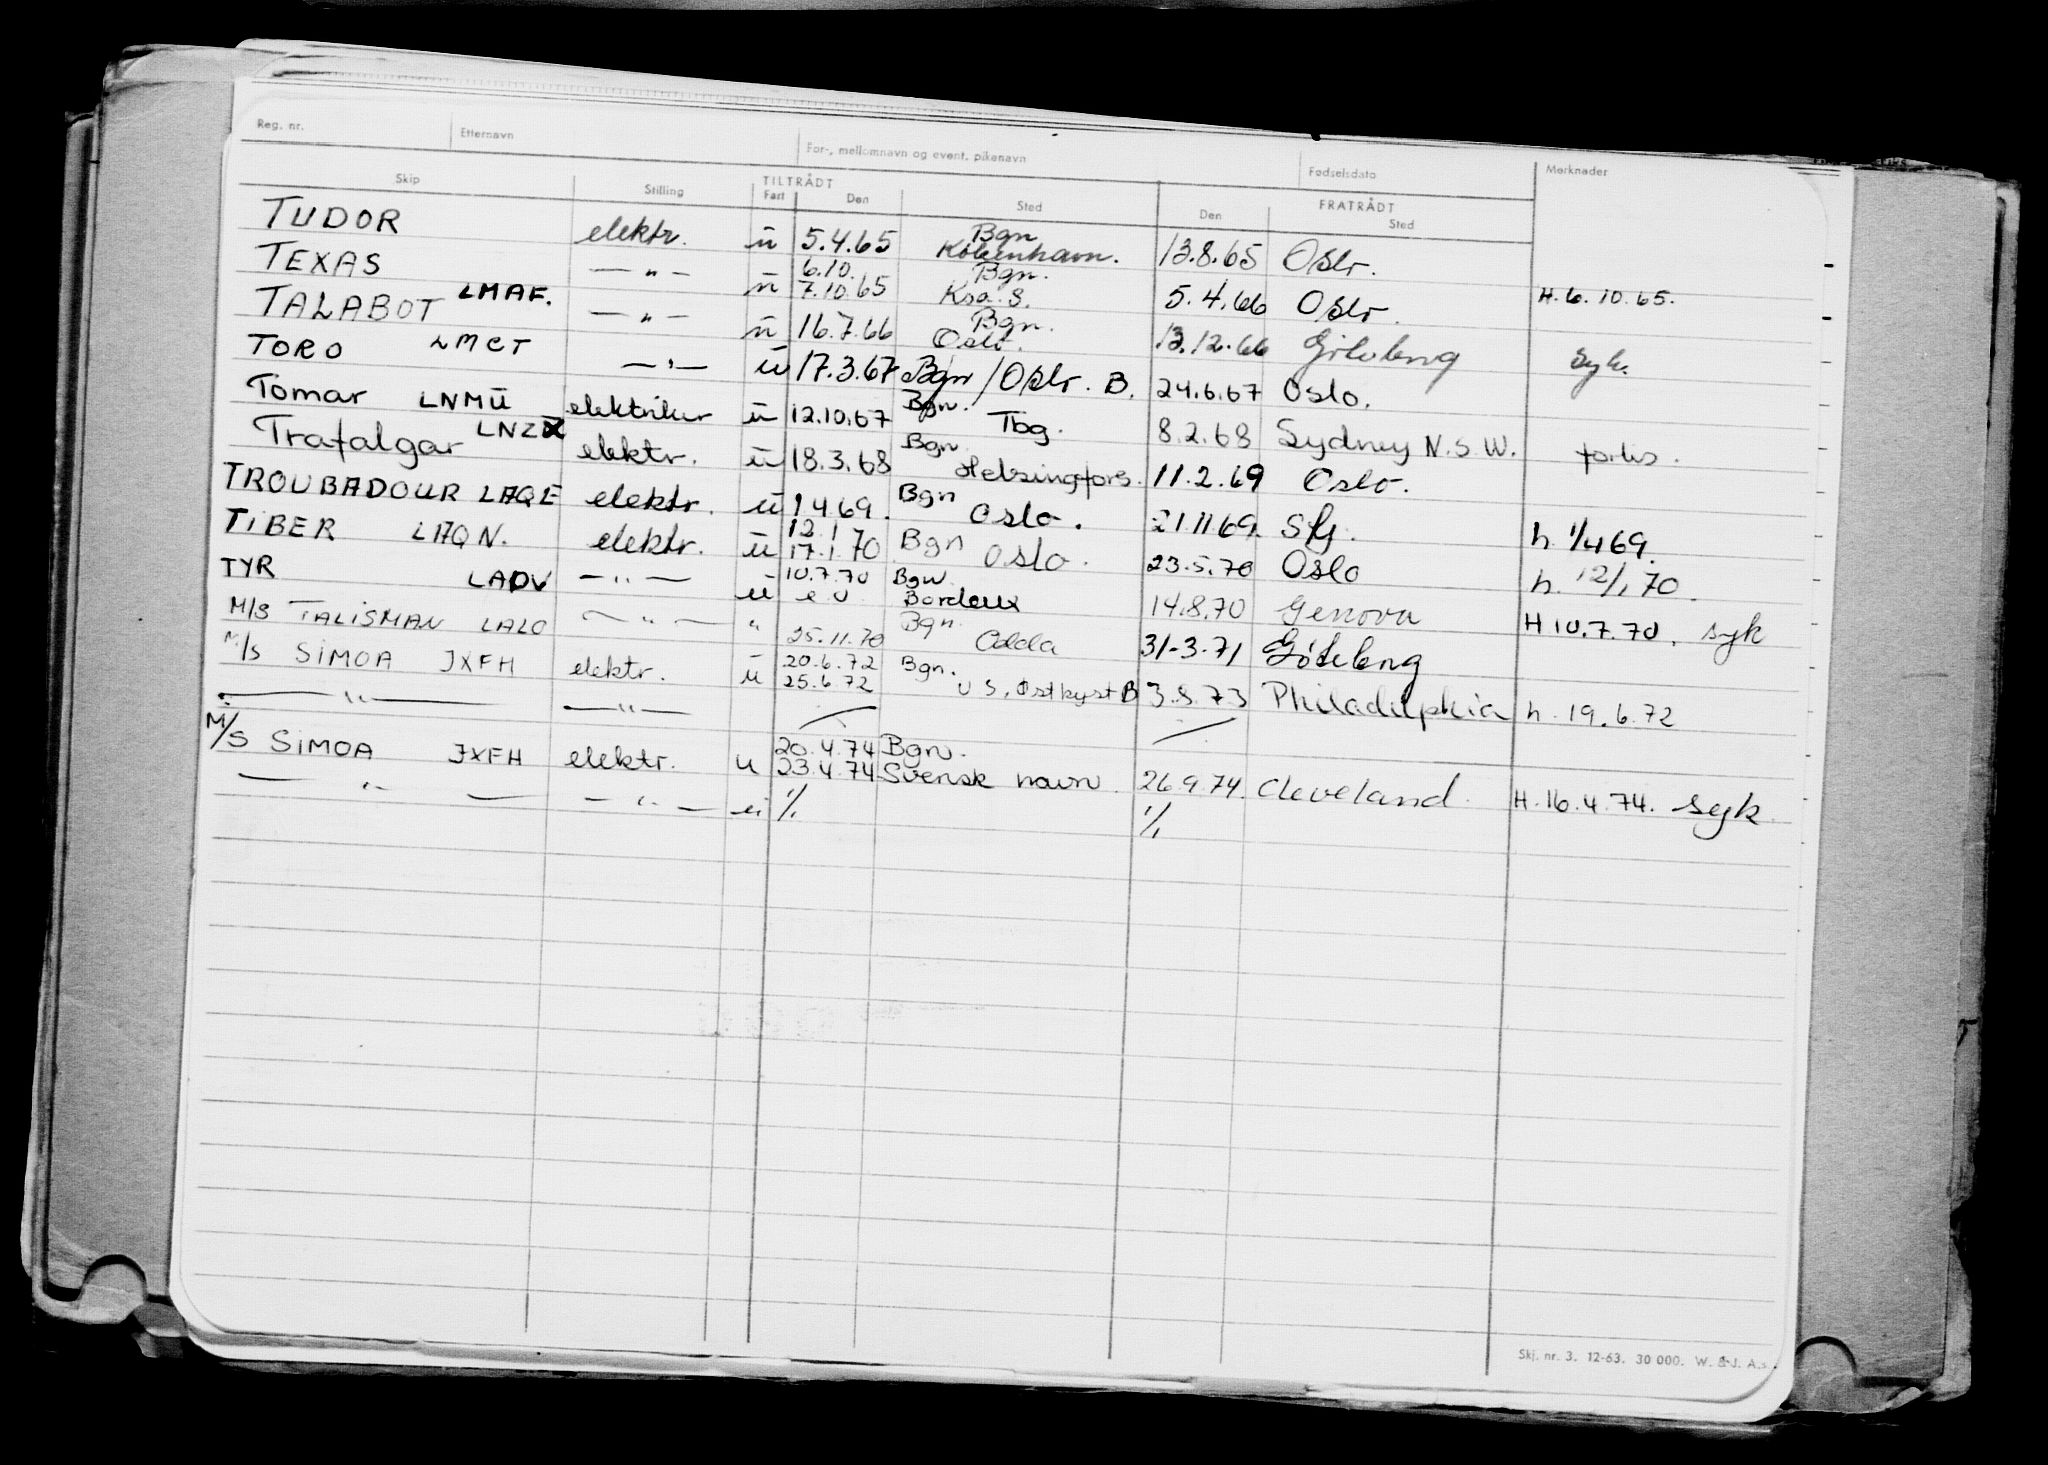 Reg. nr. Etternavn For-, mellomnavn og event. pikenavn Fødselsdato Merknader
Skip Stilling TILTRÅDT FRATRÅDT
Fart Den Sted Den Sted
TUDOR elektr. ü 5.4.65 Bgn København. 13.8.65 Oslo.
TEXAS —"— ü 6.10. 7.10.65 Bgn. Krs. S. 5.4.66 Oslo. H. 6.10.65.
TALABOT LMAF. —"— ü 16.7.66 Bgn. Oslo. 13.12.66 Göteborg syk.
TORO LMCT —"— ü 17.3.67 Bgn/Oslo. B. 24.6.67 Oslo.
Tomar LNMU elektriker ü 12.10.67 Bgn. Tbg. 8.2.68 Sydney N.S.W.
Trafalgar elektr. ü 18.3.68 Bgn. Helsingfors. 11.2.69 Oslo.
TROUBADOUR LAQE elektr. ü 1 4 69. Bgn Oslo. 21.11.69. h 1/4 69.
TIBER LAQN. elektr. ü 12.1 70 17.1.70 Bgn Oslo. 23.5.70 Oslo h. 12/1 70.
TYR LADV —"— ü 10.7.70 Bgn. Bordeux 14.8.70 Genova H 10.7.70. syk
M/S TALISMAN LALO —"— " 25.11.70 Bgn. Odda 31-3-71 Göteborg
M/S SIMOA JXFH elektr. u 20.6.72 25.6.72 Bgn. U S, Østkyst B 3.8.73 Philadelphia h. 19.6.72
—"— —"—
M/S SIMOA JXFH elektr. u 20.4.74 23.4.74 Bgn. Svensk havn. 26.9.74. Cleveland. H. 16.4.74. syk.
—"— —"— ü 1/1 1/1
Skj. nr. 3. 12-63. 30 000. W. & J. A.s.